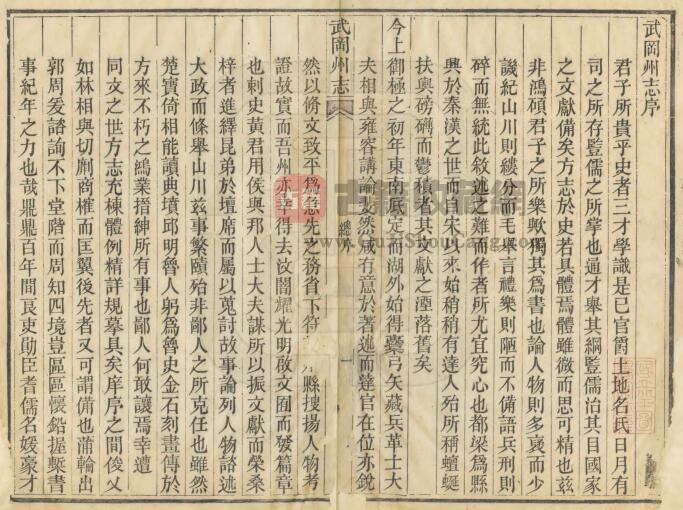 武岡州志序
君子所貴乎史者三才學識是已官爵土地名氏日月有
司之所存豎儒之所掌也通才舉其綱豎儒治其目國家
之文獻備矣方志於史若具體焉體雖微而思可精也茲
非鴻碩君子之所樂歟獨其為書也論人物則多褒而少
譏紀山川則縷分而毛舉言禮樂則陋而不備語兵刑則
碎而無統此敘述之難而作者所尤宜究心也都梁為縣
興於秦漢之世而自宋以來始稍稍有達人殆所稱蟺蜒
扶輿磅礴而鬱積者其文獻之湮落舊矣
今上御極之初年東南底定而湖外始得櫜弓矢藏兵革士大
夫相與雍容講論文然咸有意於著述而達官在位亦銳
武岡州志
總序
一
然以脩文致平為急先之務省下符 縣搜揚人物考
證故實而吾州亦幸得去汶闇耀光明啟文囿而發篇章
也刺史黃君用侯與邦人士大夫謀所以振文獻而榮桑
梓者進繹昆弟於壇席而屬以蒐討故事論列人物諮述
大政而條舉山川茲事繁賾殆非鄙人之所克任也雖然
楚寶倚相能讀典墳邱明魯人躬為魯史金石刻畫傳於
方來不朽之鴻業搢紳所有事也鄙人何敢讓焉幸遭
同文之世方志充棟體例精詳規摹具矣庠序之間俊乂
如林相與切劘商榷而匡翼後先者又可謂備也蒲輪出
郭周爰諮詢不下堂階而周知四境豈區區懷鉛握槧書
事紀年之力也哉鼎鼎百年間良吏勛臣耆儒名媛豪才
古籍收藏網
www.GuJiShouCang.com